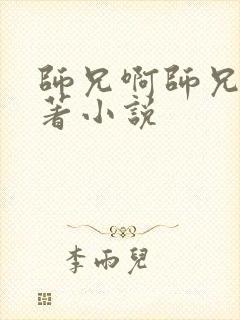 師兄啊師兄
著小説
李雨兒